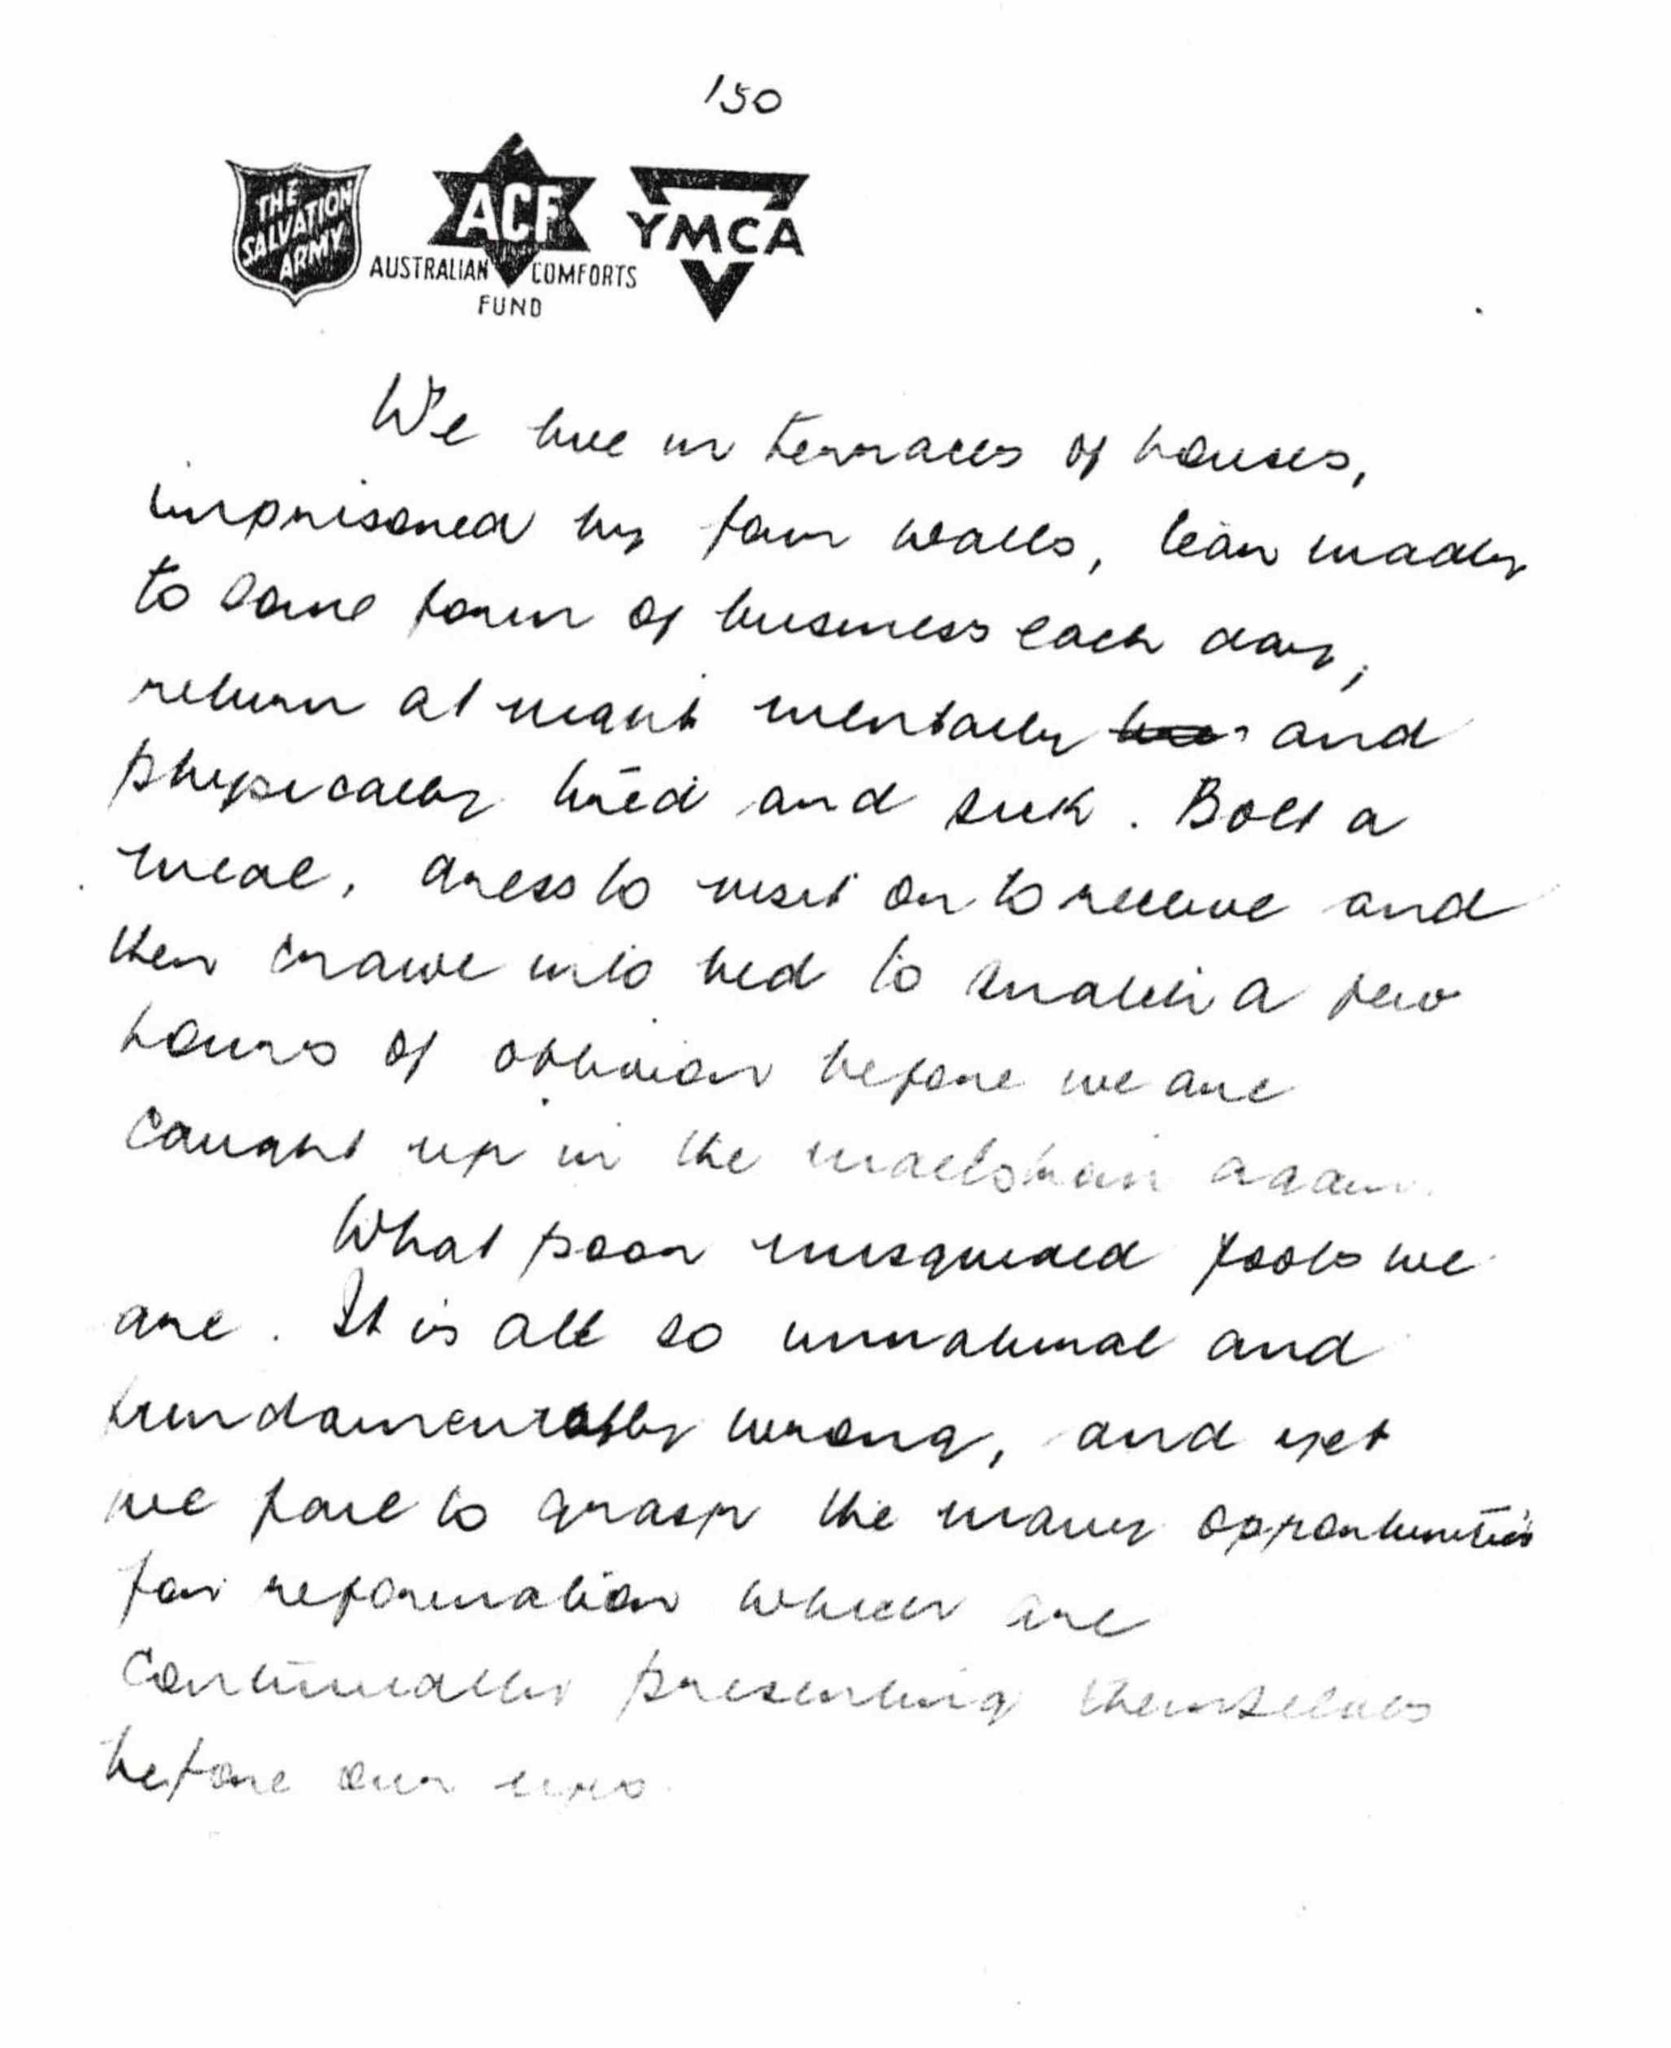 150
THE
SALVATION
ARMY
ACF
AUSTRALIAN COMFORTS
FUND
YMCA
We live in terraces of houses,
imprisoned by four walls, tear madly
to some form of business each day,
return at night mentally and
physically tired and sick. Bolt a
meal, dress to visit or to receive and
then crawl into bed to snatch a few
hours of oblivion before we are
caught up in the maelstrom again.
What poor misguided fools we
are. It is all so unnatural and
fundamentally wrong, and yet
we fail to grasp the many opportunities
for reformation which are
continually presenting themselves
before our eyes.